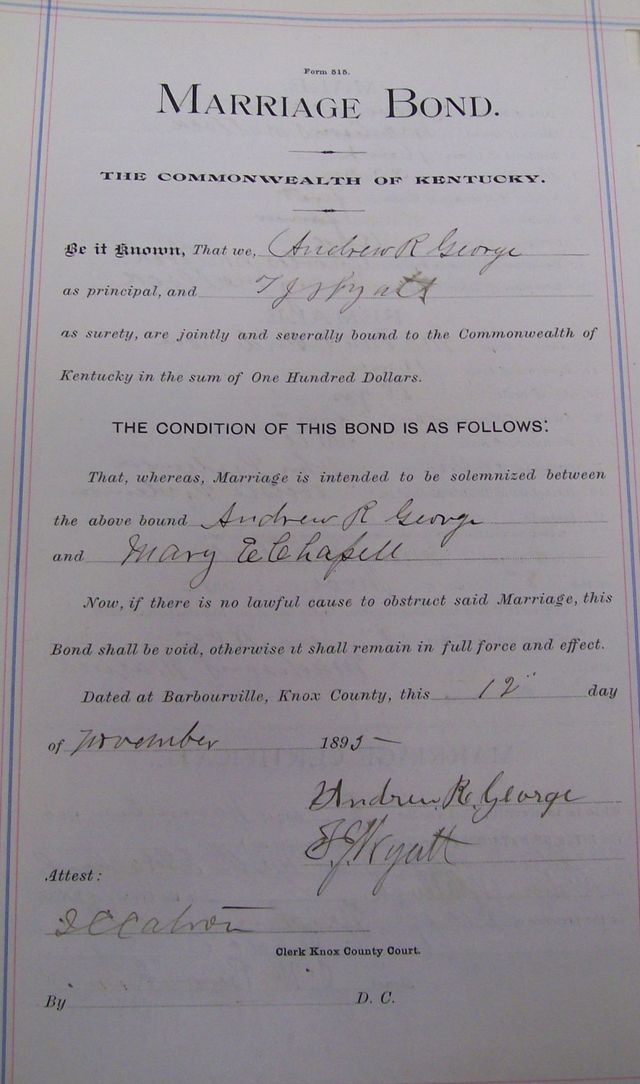 Form 515.
MARRIAGE BOND.
THE COMMONWEALTH OF KENTUCKY.
Be it Known, That we, Andrew R George
as principal, and T J Wyatt
as surety, are jointly and severally bound to the Commonwealth of
Kentucky in the sum of One Hundred Dollars.
THE CONDITION OF THIS BOND IS AS FOLLOWS:
That, whereas, Marriage is intended to be solemnized between
the above bound Andrew R George
and Mary E Chapell
Now, if there is no lawful cause to obstruct said Marriage, this
Bond shall be void, otherwise it shall remain in full force and effect.
Dated at Barbourville, Knox County, this 12" day
of November 1895
Andrew R. George
T. J. Wyatt
Attest:
Clerk Knox County Court.
By D. C.